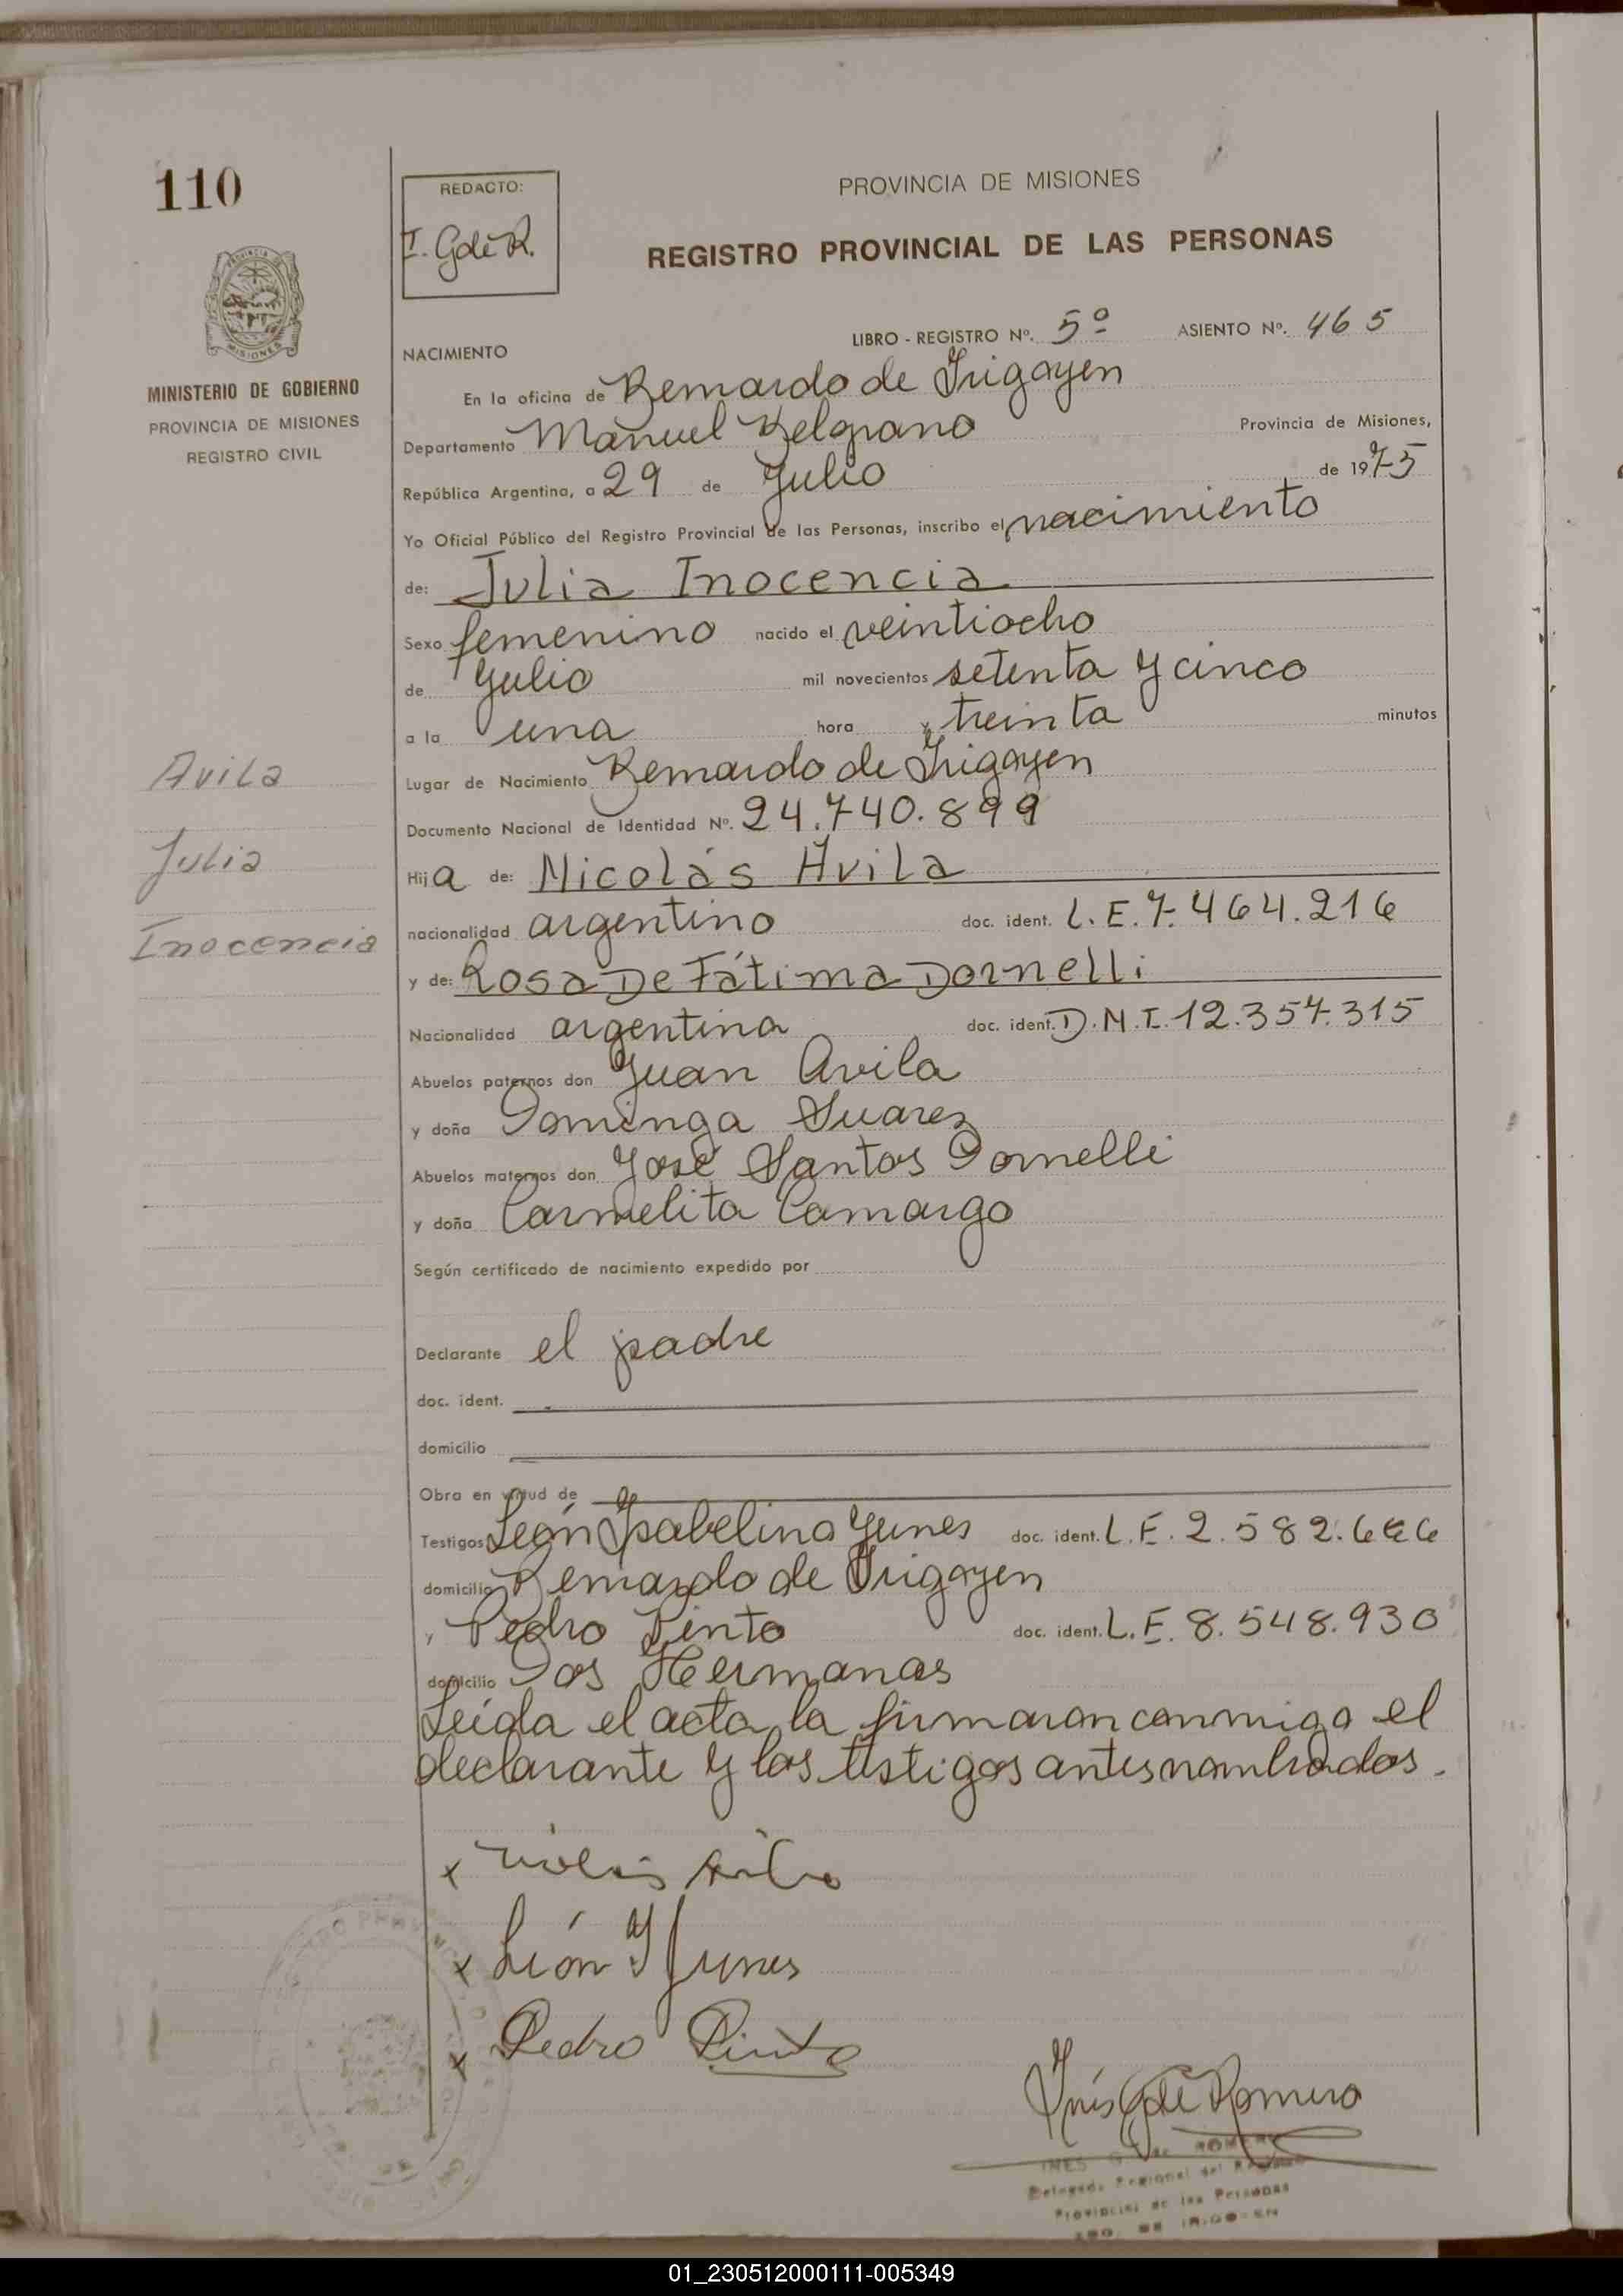 110
REDACTO:
I. G de R.
PROVINCIA DE MISIONES
REGISTRO PROVINCIAL DE LAS PERSONAS
MISIONES
MINISTERIO DE GOBIERNO
PROVINCIA DE MISIONES
REGISTRO CIVIL
LIBRO - REGISTRO Nº. 5º ASIENTO Nº. 465
NACIMIENTO
En la oficina de Bernardo de Irigoyen
Departamento Manuel Belgrano Provincia de Misiones,
República Argentina, a 29 de Julio de 1975
Yo Oficial Público del Registro Provincial de las Personas, inscribo el nacimiento
de: Julia Inocencia
Sexo femenino nacido el veintiocho
de Julio mil novecientos setenta y cinco
a la una hora y treinta minutos
Lugar de Nacimiento Bernardo de Irigoyen
Documento Nacional de Identidad Nº. 24.740.899
Hija de: Nicolás Avila
nacionalidad argentino doc. ident. L.E. 7.464.216
y de: Rosa De Fátima Dornelli
Nacionalidad argentina doc. ident. D.N.I. 12.357.315
Abuelos paternos don Juan Avila
y doña Dominga Suarez
Abuelos maternos don José Santos Dornelli
y doña Carmelita Camargo
Según certificado de nacimiento expedido por
Declarante el padre
doc. ident.
domicilio
Obra en virtud de
Testigos León Isabelino Yunes doc. ident. L.E. 2.582.666
domicilio Bernardo de Irigoyen
y Pedro Pinto doc. ident. L.E. 8.548.930
domicilio Dos Hermanas
Leída el acta, la firmaron conmigo el
declarante y los testigos antes nombrados.
Avila
Julia
Inocencia
x Nicolás Avila
x León Y Yunes
x Pedro Pinto
Inés G de Romero
INES G. de ROMERO
Delegada Regional del Registro
Provincial de las Personas
BDO. DE IRIGOYEN
01_230512000111-005349